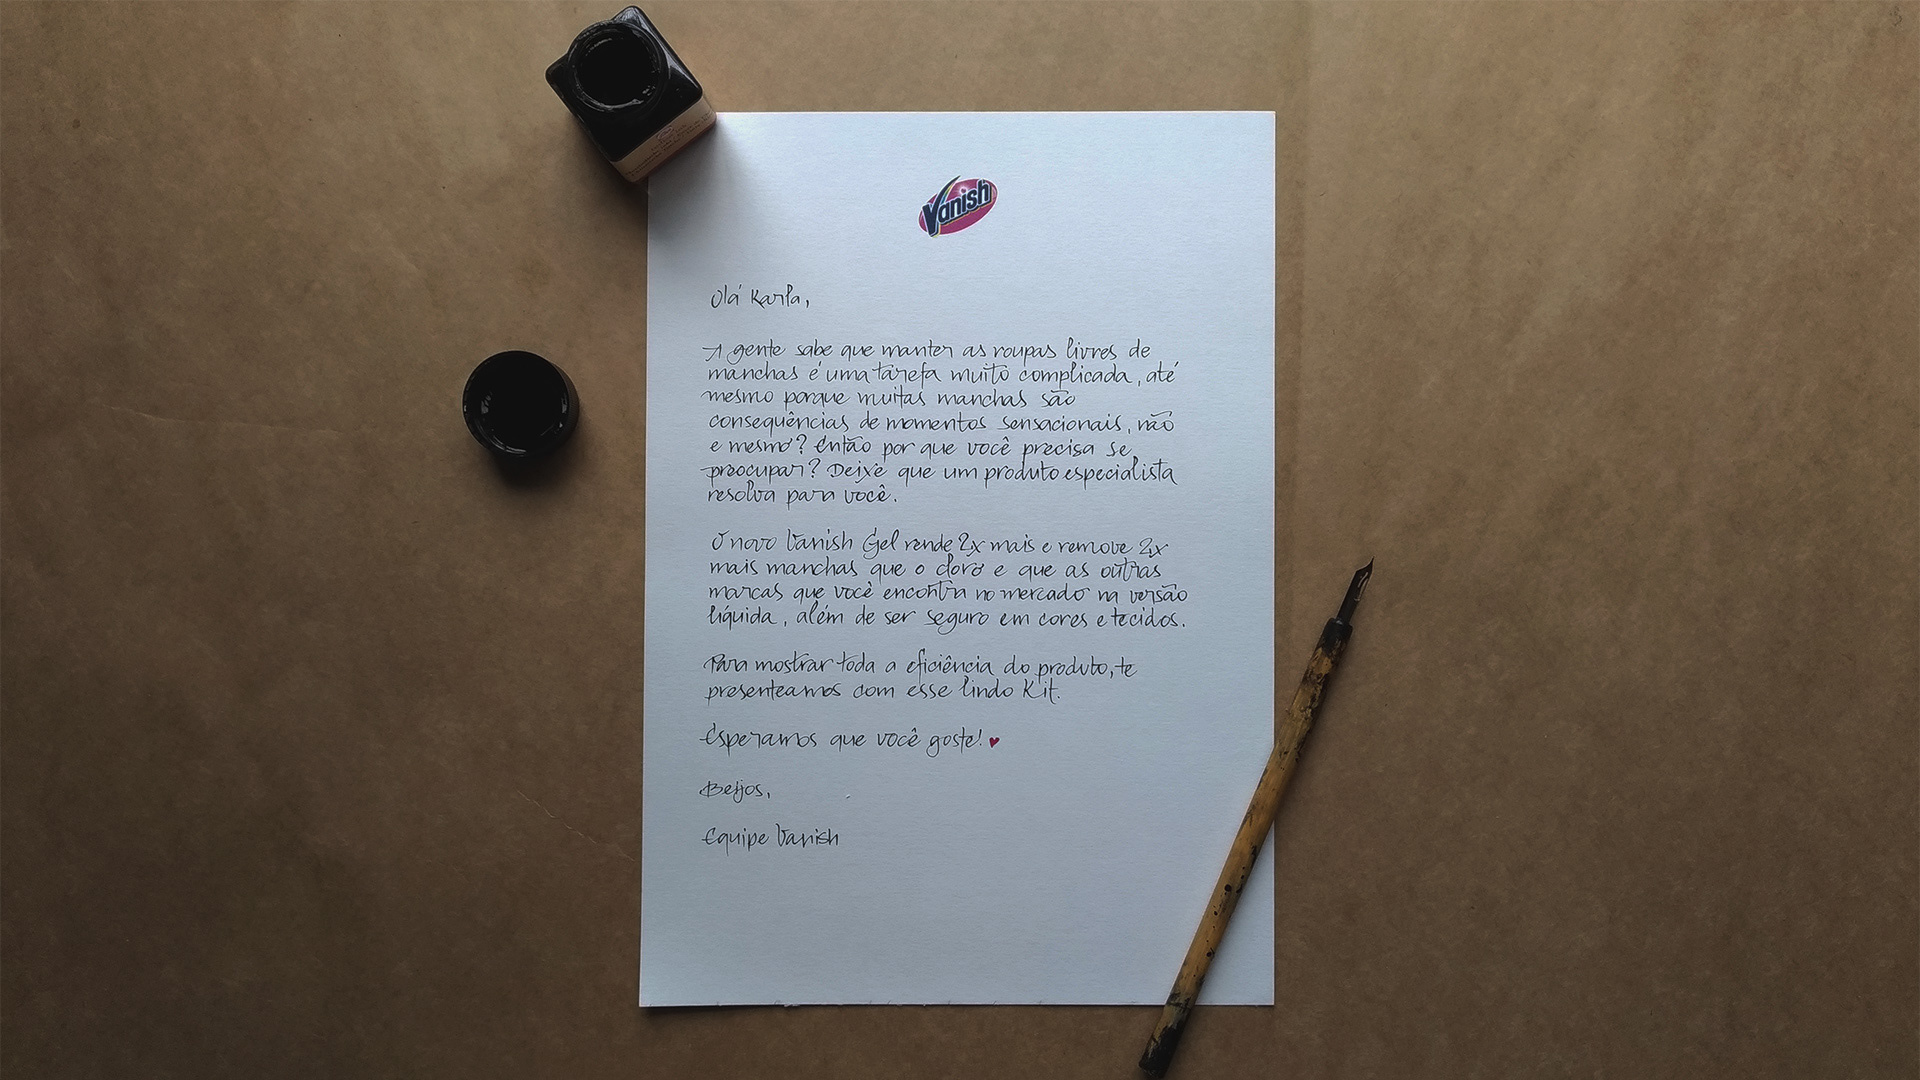 Vanish
Olá Karla,
A gente sabe que manter as roupas livres de
manchas é uma tarefa muito complicada, até
mesmo porque muitas manchas são
consequências de momentos sensacionais, não
e mesmo? Então por que você precisa se
preocupar? Deixe que um produto especialista
resolva para você.
O novo Vanish Gel rende 2x mais e remove 2x
mais manchas que o cloro e que as outras
marcas que você encontra no mercado na versão
líquida, além de ser seguro em cores e tecidos.
Para mostrar toda a eficiência do produto, te
presenteamos com esse lindo Kit.
Esperamos que você goste! ♥
Beijos,
Equipe Vanish